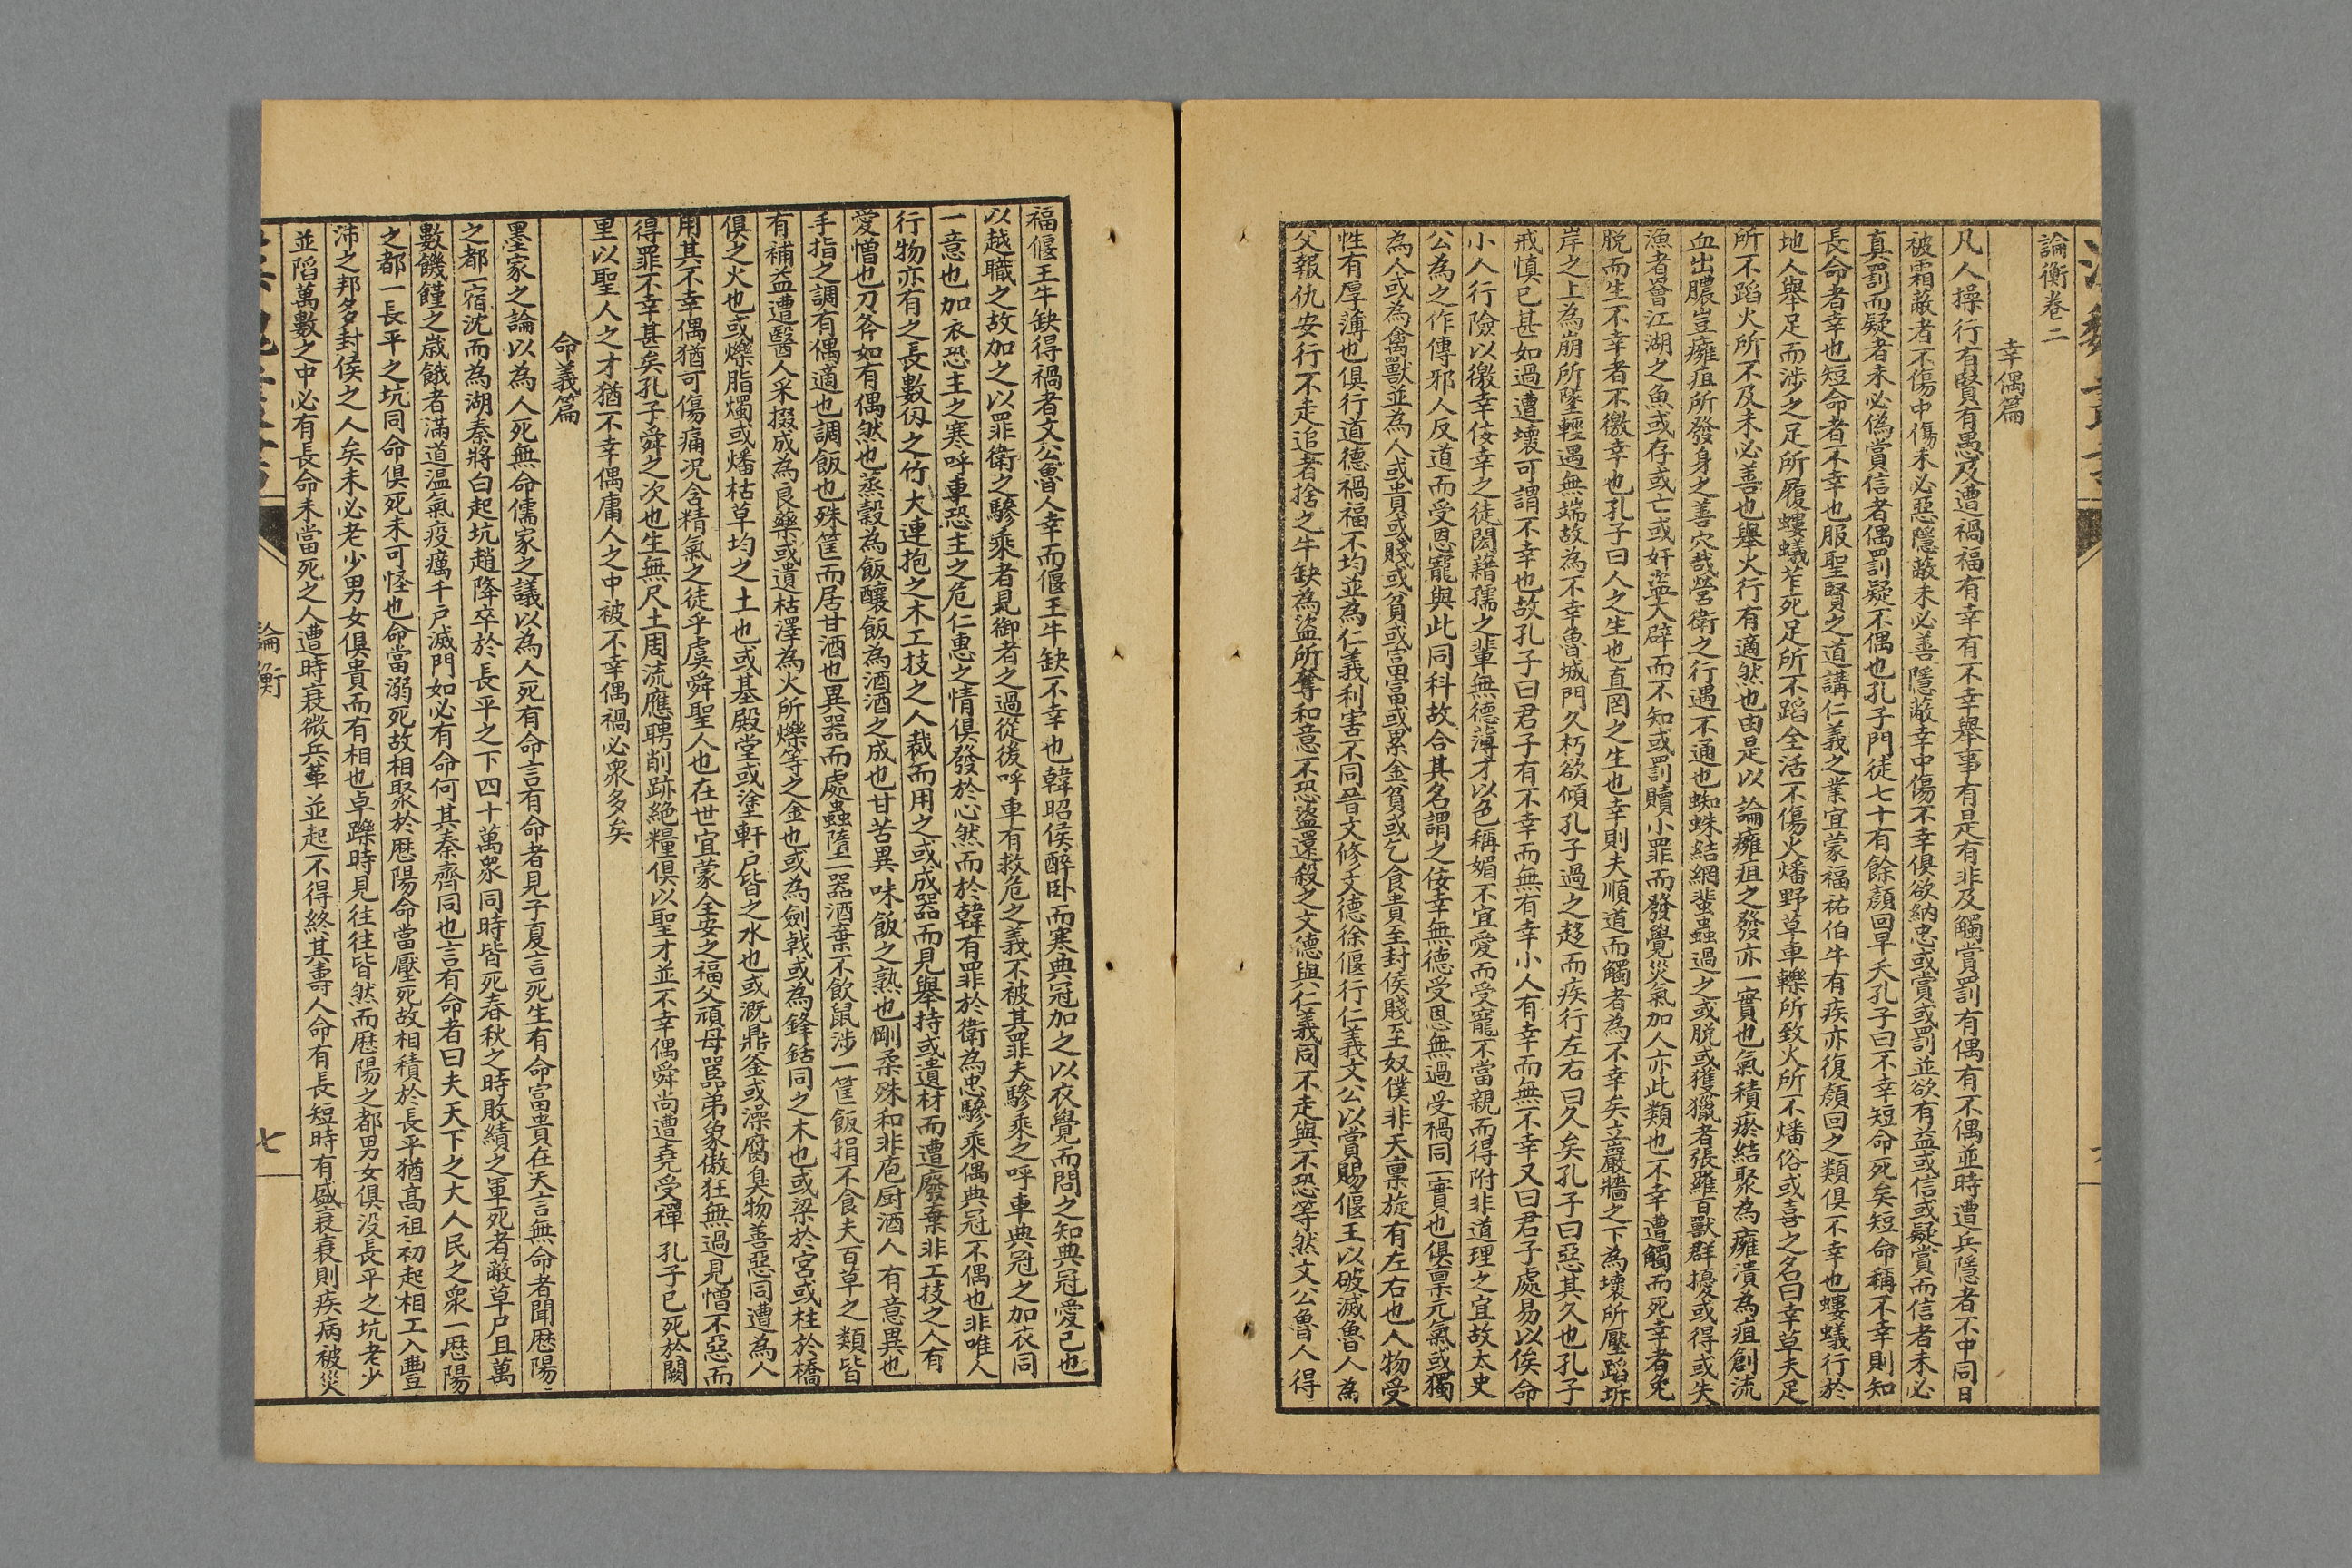 論衡卷二
幸偶篇
凡人操行有賢有愚及遭禍福有幸有不幸舉事有是有非及觸賞罰有偶有不偶並時遭兵隱者不中同日
被霜蔽者不傷中傷未必惡隱蔽未必善隱蔽幸中傷不幸俱欲納忠或賞或罰並欲有益或信或疑賞而信者未必
真罰而疑者未必偽賞信者偶罰疑不偶也孔子門徒七十有餘顏回早夭孔子曰不幸短命死矣短命稱不幸則知
長命者幸也短命者不幸也服聖賢之道講仁義之業宜蒙福祐伯牛有疾亦復顏回之類俱不幸也螻蟻行於
地人舉足而涉之足所履螻蟻苲死足所不蹈全活不傷火燔野草車轢所致火所不燔俗或喜之名曰幸草夫足
所不蹈火所不及未必善也舉火行有適然也由是以論癰疽之發亦一實也氣積瘀結聚為癰潰為疽創流
血出膿豈癰疽所發身之善穴哉營衛之行遇不通也蜘蛛結網蜚蟲過之或脱或獲獵者張羅百獸群擾或得或失
漁者罾江湖之魚或存或亡或奸盜大辟而不知或罰贖小罪而發覺災氣加人亦此類也不幸遭觸而死幸者免
脱而生不幸者不徼幸也孔子曰人之生也直罔之生也幸則夫順道而觸者為不幸矣立巖牆之下為壞所壓蹈坼
岸之上為崩所墜輕遇無端故為不幸魯城門久朽欲傾孔子過之趍而疾行左右曰久矣孔子曰惡其久也孔子
戒慎已甚如過遭壞可謂不幸也故孔子曰君子有不幸而無有幸小人有幸而無不幸又曰君子處易以俟命
小人行險以徼幸佞幸之徒閎藉孺之輩無德薄才以色稱媚不宜愛而受寵不當親而得附非道理之宜故太史
公為之作傳邪人反道而受恩寵與此同科故合其名謂之佞幸無德受恩無過受禍同一實也俱禀元氣或獨
為人或為禽獸並為人或貴或賤或貧或富富或累金貧或乞食貴至封侯賤至奴僕非天禀旋有左右也人物受
性有厚薄也俱行道德禍福不均並為仁義利害不同晉文修文德徐偃行仁義文公以賞賜偃王以破滅魯人為
父報仇安行不走追者捨之牛缺為盜所奪和意不恐盜還殺之文德與仁義同不走與不恐等然文公魯人得
福偃王牛缺得禍者文公魯人幸而偃王牛缺不幸也韓昭侯醉卧而寒典冠加之以衣覺而問之知典冠愛已也
以越職之故加之以罪衛之驂乘者見御者之過從後呼車有救危之義不被其罪夫驂乘之呼車典冠之加衣同
一意也加衣恐主之寒呼車恐主之危仁惠之情俱發於心然而於韓有罪於衛為忠驂乘偶典冠不偶也非唯人
行物亦有之長數仭之竹大連抱之木工技之人裁而用之或成器而見舉持或遺材而遭廢棄非工技之人有
愛憎也刀斧如有偶然也蒸穀為飯釀飯為酒酒之成也甘苦異味飯之熟也剛柔殊和非庖厨酒人有意異也
手指之調有偶適也調飯也殊筐而居甘酒也異器而處蟲墮一器酒棄不飲鼠涉一筐飯捐不食夫百草之類皆
有補益遭醫人采掇成為良藥或遺枯澤為火所爍等之金也或為劍戟或為鋒銛同之木也或梁於宮或柱於橋
俱之火也或爍脂燭或燔枯草均之土也或基殿堂或塗軒户皆之水也或溉鼎釜或澡腐臭物善惡同遭為人
用其不幸偶猶可傷痛况含精氣之徒乎虞舜聖人也在世宜蒙全安之福父頑母嚚弟象傲狂無過見憎不惡而
得罪不幸甚矣孔子舜之次也生無尺土周流應聘削跡絕糧俱以聖才並不幸偶舜尚遭堯受禪孔子已死於闕
里以聖人之才猶不幸偶庸人之中被不幸偶禍必衆多矣
命義篇
墨家之論以為人死無命儒家之議以為人死有命言有命者見子夏言死生有命富貴在天言無命者聞歷陽
之都一宿沈而為湖秦將白起坑趙降卒於長平之下四十萬衆同時皆死春秋之時敗績之軍死者蔽草尸且萬
數饑饉之歲餓者滿道温氣疫癘千户滅門如必有命何其秦齊同也言有命者曰夫天下之大人民之衆一歷陽
之都一長平之坑同命俱死未可怪也命當溺死故相聚於歷陽命當壓死故相積於長平猶高祖初起相工入豐
沛之邦多封侯之人矣未必老少男女俱貴而有相也卓躒時見往往皆然而歷陽之都男女俱没長平之坑老少
並陷萬數之中必有長命未當死之人遭時衰微兵革並起不得終其壽人命有長短時有盛衰衰則疾病被災
論衡
七